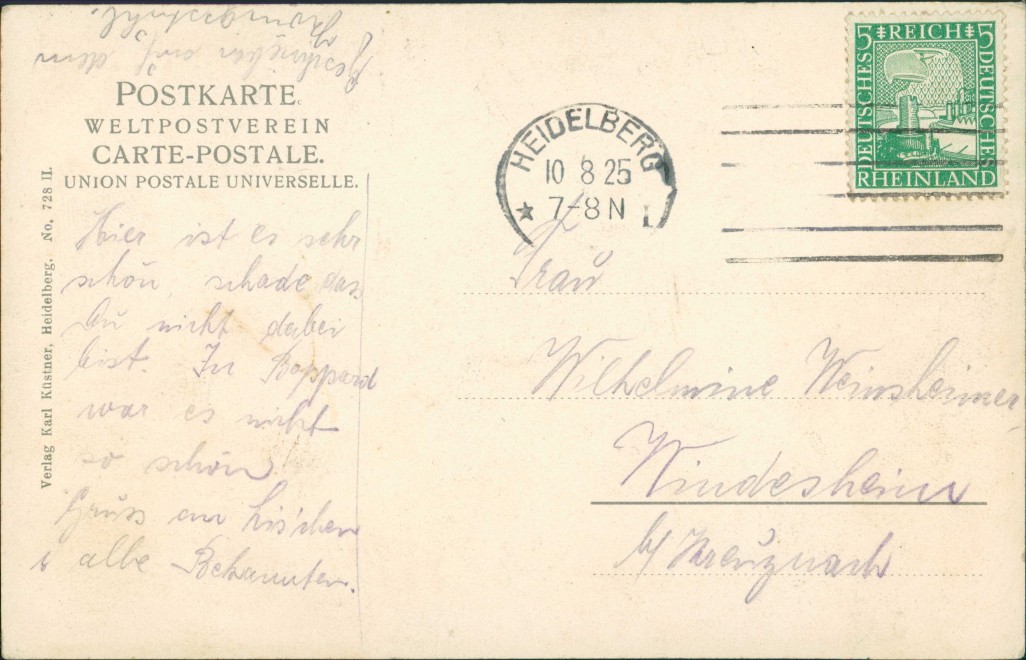 Geschrieben auf dem
Königsstuhl.
POSTKARTE.
WELTPOSTVEREIN
CARTE-POSTALE.
UNION POSTALE UNIVERSELLE.
Verlag Karl Küstner, Heidelberg. No. 728 II.
Hier ist es sehr
schön, schade das
Du nicht dabei
bist. In Boppard
war es nicht
so schön.
Gruss an Lis'chen
u alle Bekannten.
HEIDELBERG
10 8 25
★ 7-8 N
5 REICH 5
DEUTSCHES
DEUTSCHES
RHEINLAND
Frau
Wilhelmine Weinsheimer
Windesheim
b/ Kreuznach